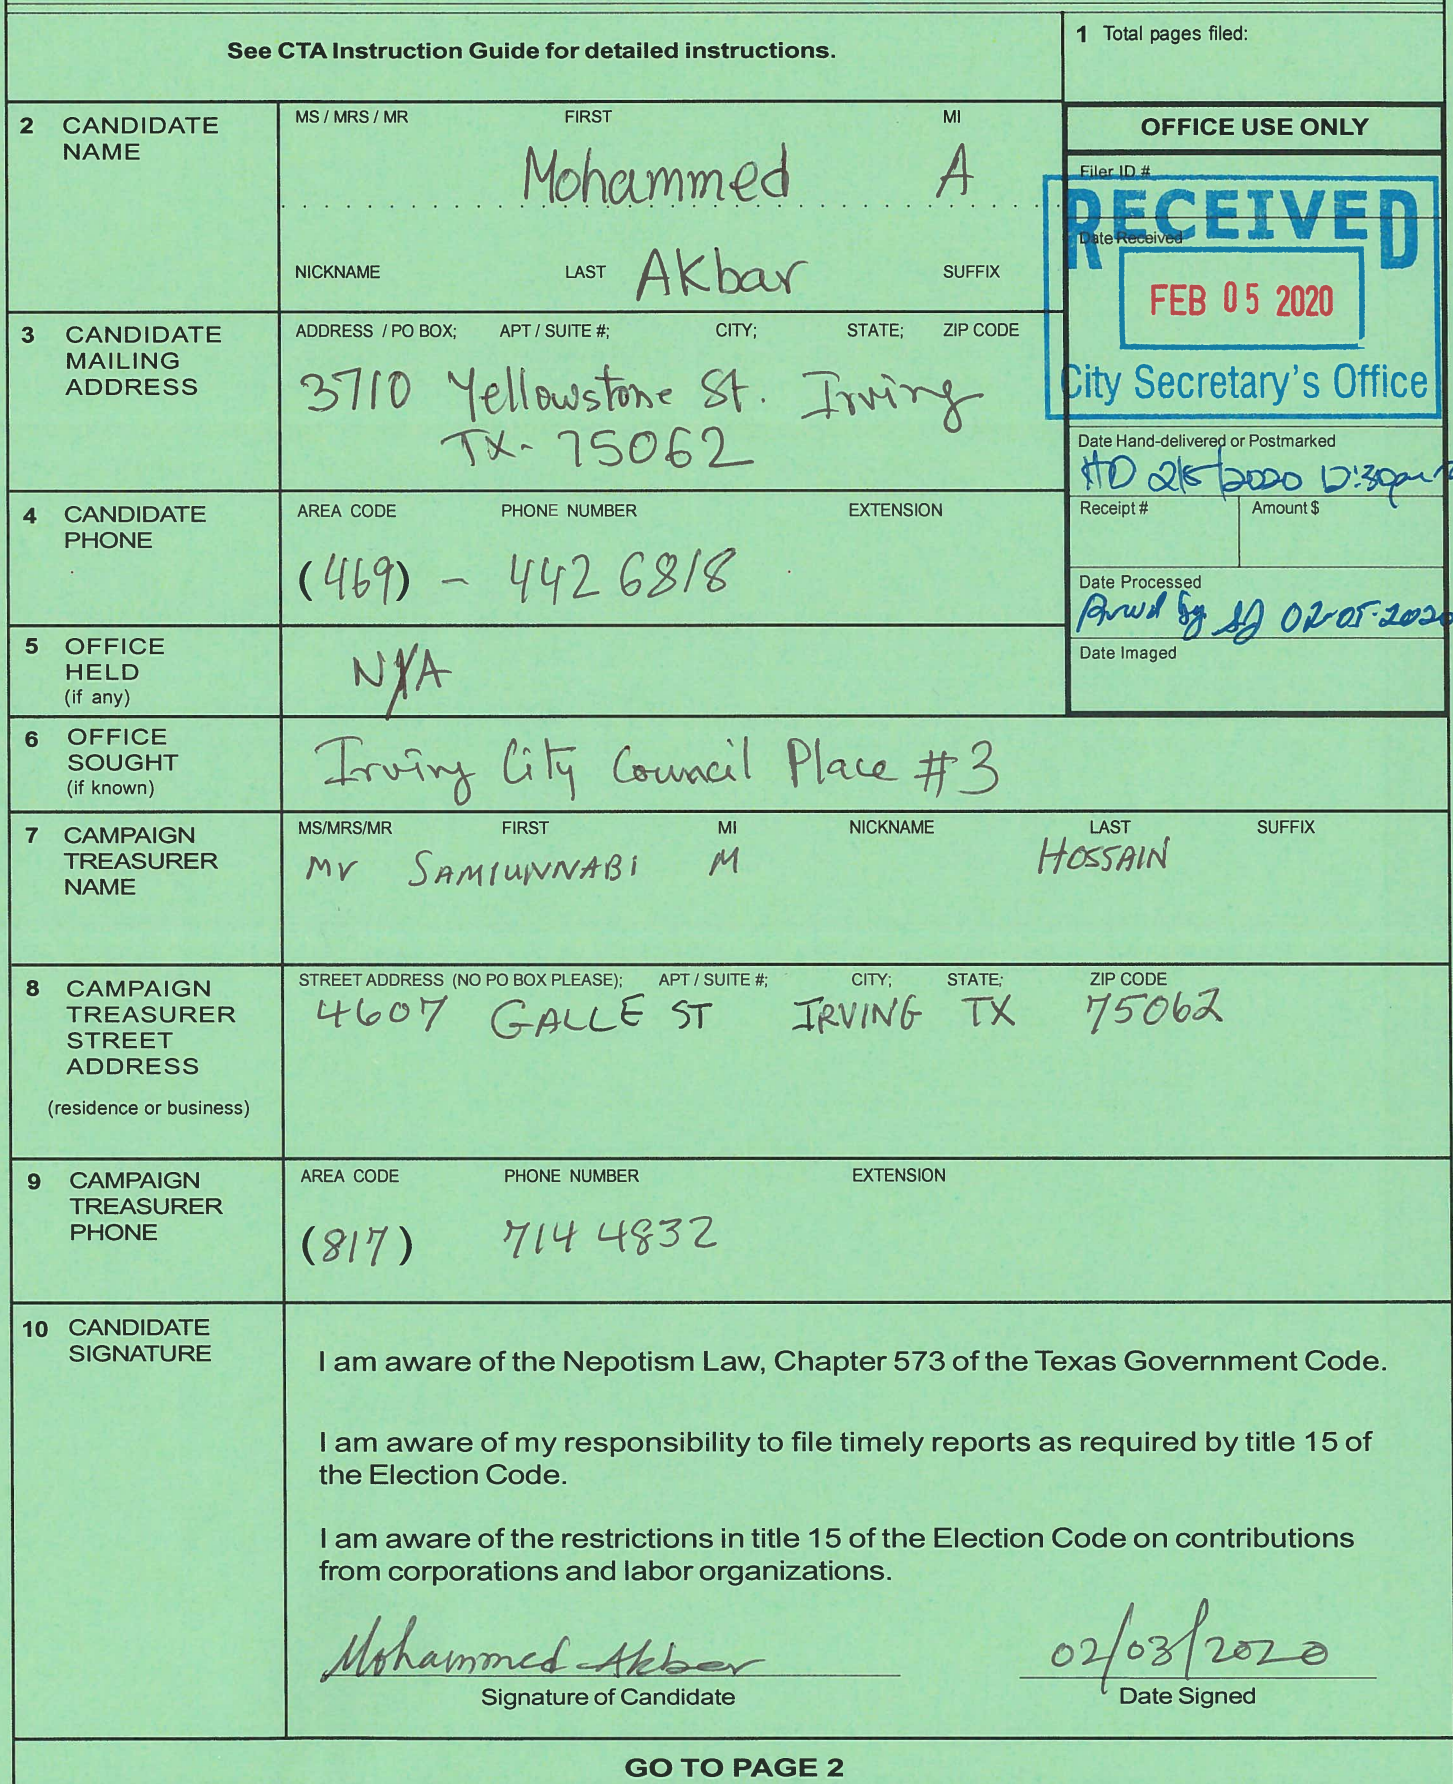 See CTA Instruction Guide for detailed instructions.
1 Total pages filed:
2 CANDIDATE NAME
MS / MRS / MR FIRST MI
Mohammed A
NICKNAME LAST SUFFIX
Akbar
OFFICE USE ONLY
Filer ID #
RECEIVED
Date Received
FEB 05 2020
City Secretary's Office
3 CANDIDATE MAILING ADDRESS
ADDRESS / PO BOX; APT / SUITE #; CITY; STATE; ZIP CODE
3710 Yellowstone St. Irving
TX- 75062
Date Hand-delivered or Postmarked
HD 2/5/2020 12:30pm
Receipt # Amount $
4 CANDIDATE PHONE
AREA CODE PHONE NUMBER EXTENSION
(469) - 442 6818
Date Processed
by SJ 02-05-2020
Date Imaged
5 OFFICE HELD (if any)
N/A
6 OFFICE SOUGHT (if known)
Irving City Council Place #3
7 CAMPAIGN TREASURER NAME
MS/MRS/MR FIRST MI NICKNAME LAST SUFFIX
Mr SAMIUNNABI M HOSSAIN
8 CAMPAIGN TREASURER STREET ADDRESS
(residence or business)
STREET ADDRESS (NO PO BOX PLEASE); APT / SUITE #; CITY; STATE; ZIP CODE
4607 GALLE ST IRVING TX 75062
9 CAMPAIGN TREASURER PHONE
AREA CODE PHONE NUMBER EXTENSION
(817) 714 4832
10 CANDIDATE SIGNATURE
I am aware of the Nepotism Law, Chapter 573 of the Texas Government Code.
I am aware of my responsibility to file timely reports as required by title 15 of
the Election Code.
I am aware of the restrictions in title 15 of the Election Code on contributions
from corporations and labor organizations.
Mohammed Akbar 02/03/2020
Signature of Candidate Date Signed
GO TO PAGE 2